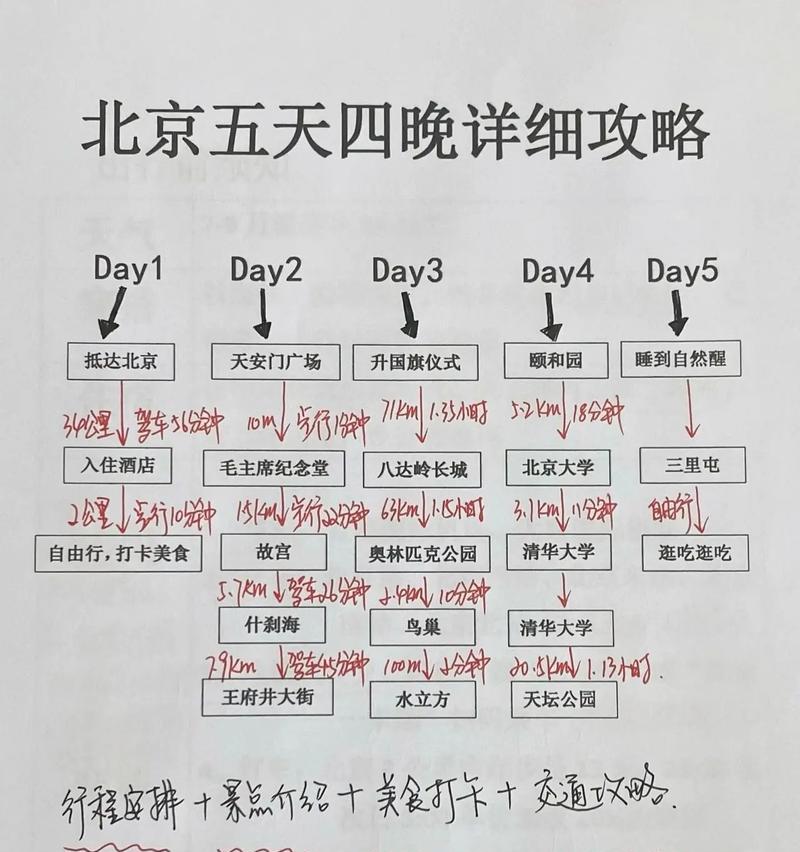 北京五天四晚详细攻略
Day1 Day2 Day3 Day4 Day5
抵达北京 天安门广场 升国旗仪式 颐和园 睡到自然醒
公里 驾车56分钟 10m 步行1分钟 71km 1.35小时 5.2km 18分钟
入住酒店 毛主席纪念堂 八达岭长城 北京大学 三里屯
2公里 步行10分钟 步行22分钟 63km 1.15小时 3.1km 11分钟 自由行
自由行,打卡美食 故宫 奥林匹克公园 清华大学 逛吃逛吃
5.7km 驾车26分钟 2.4km 10分钟
什刹海 鸟巢 清华大学
驾车45分钟 100m 2分钟 20.5km 1.13小时.
王府井大街 水立方 天坛公园
行程安排+景点介绍+美食打卡+交通攻略.